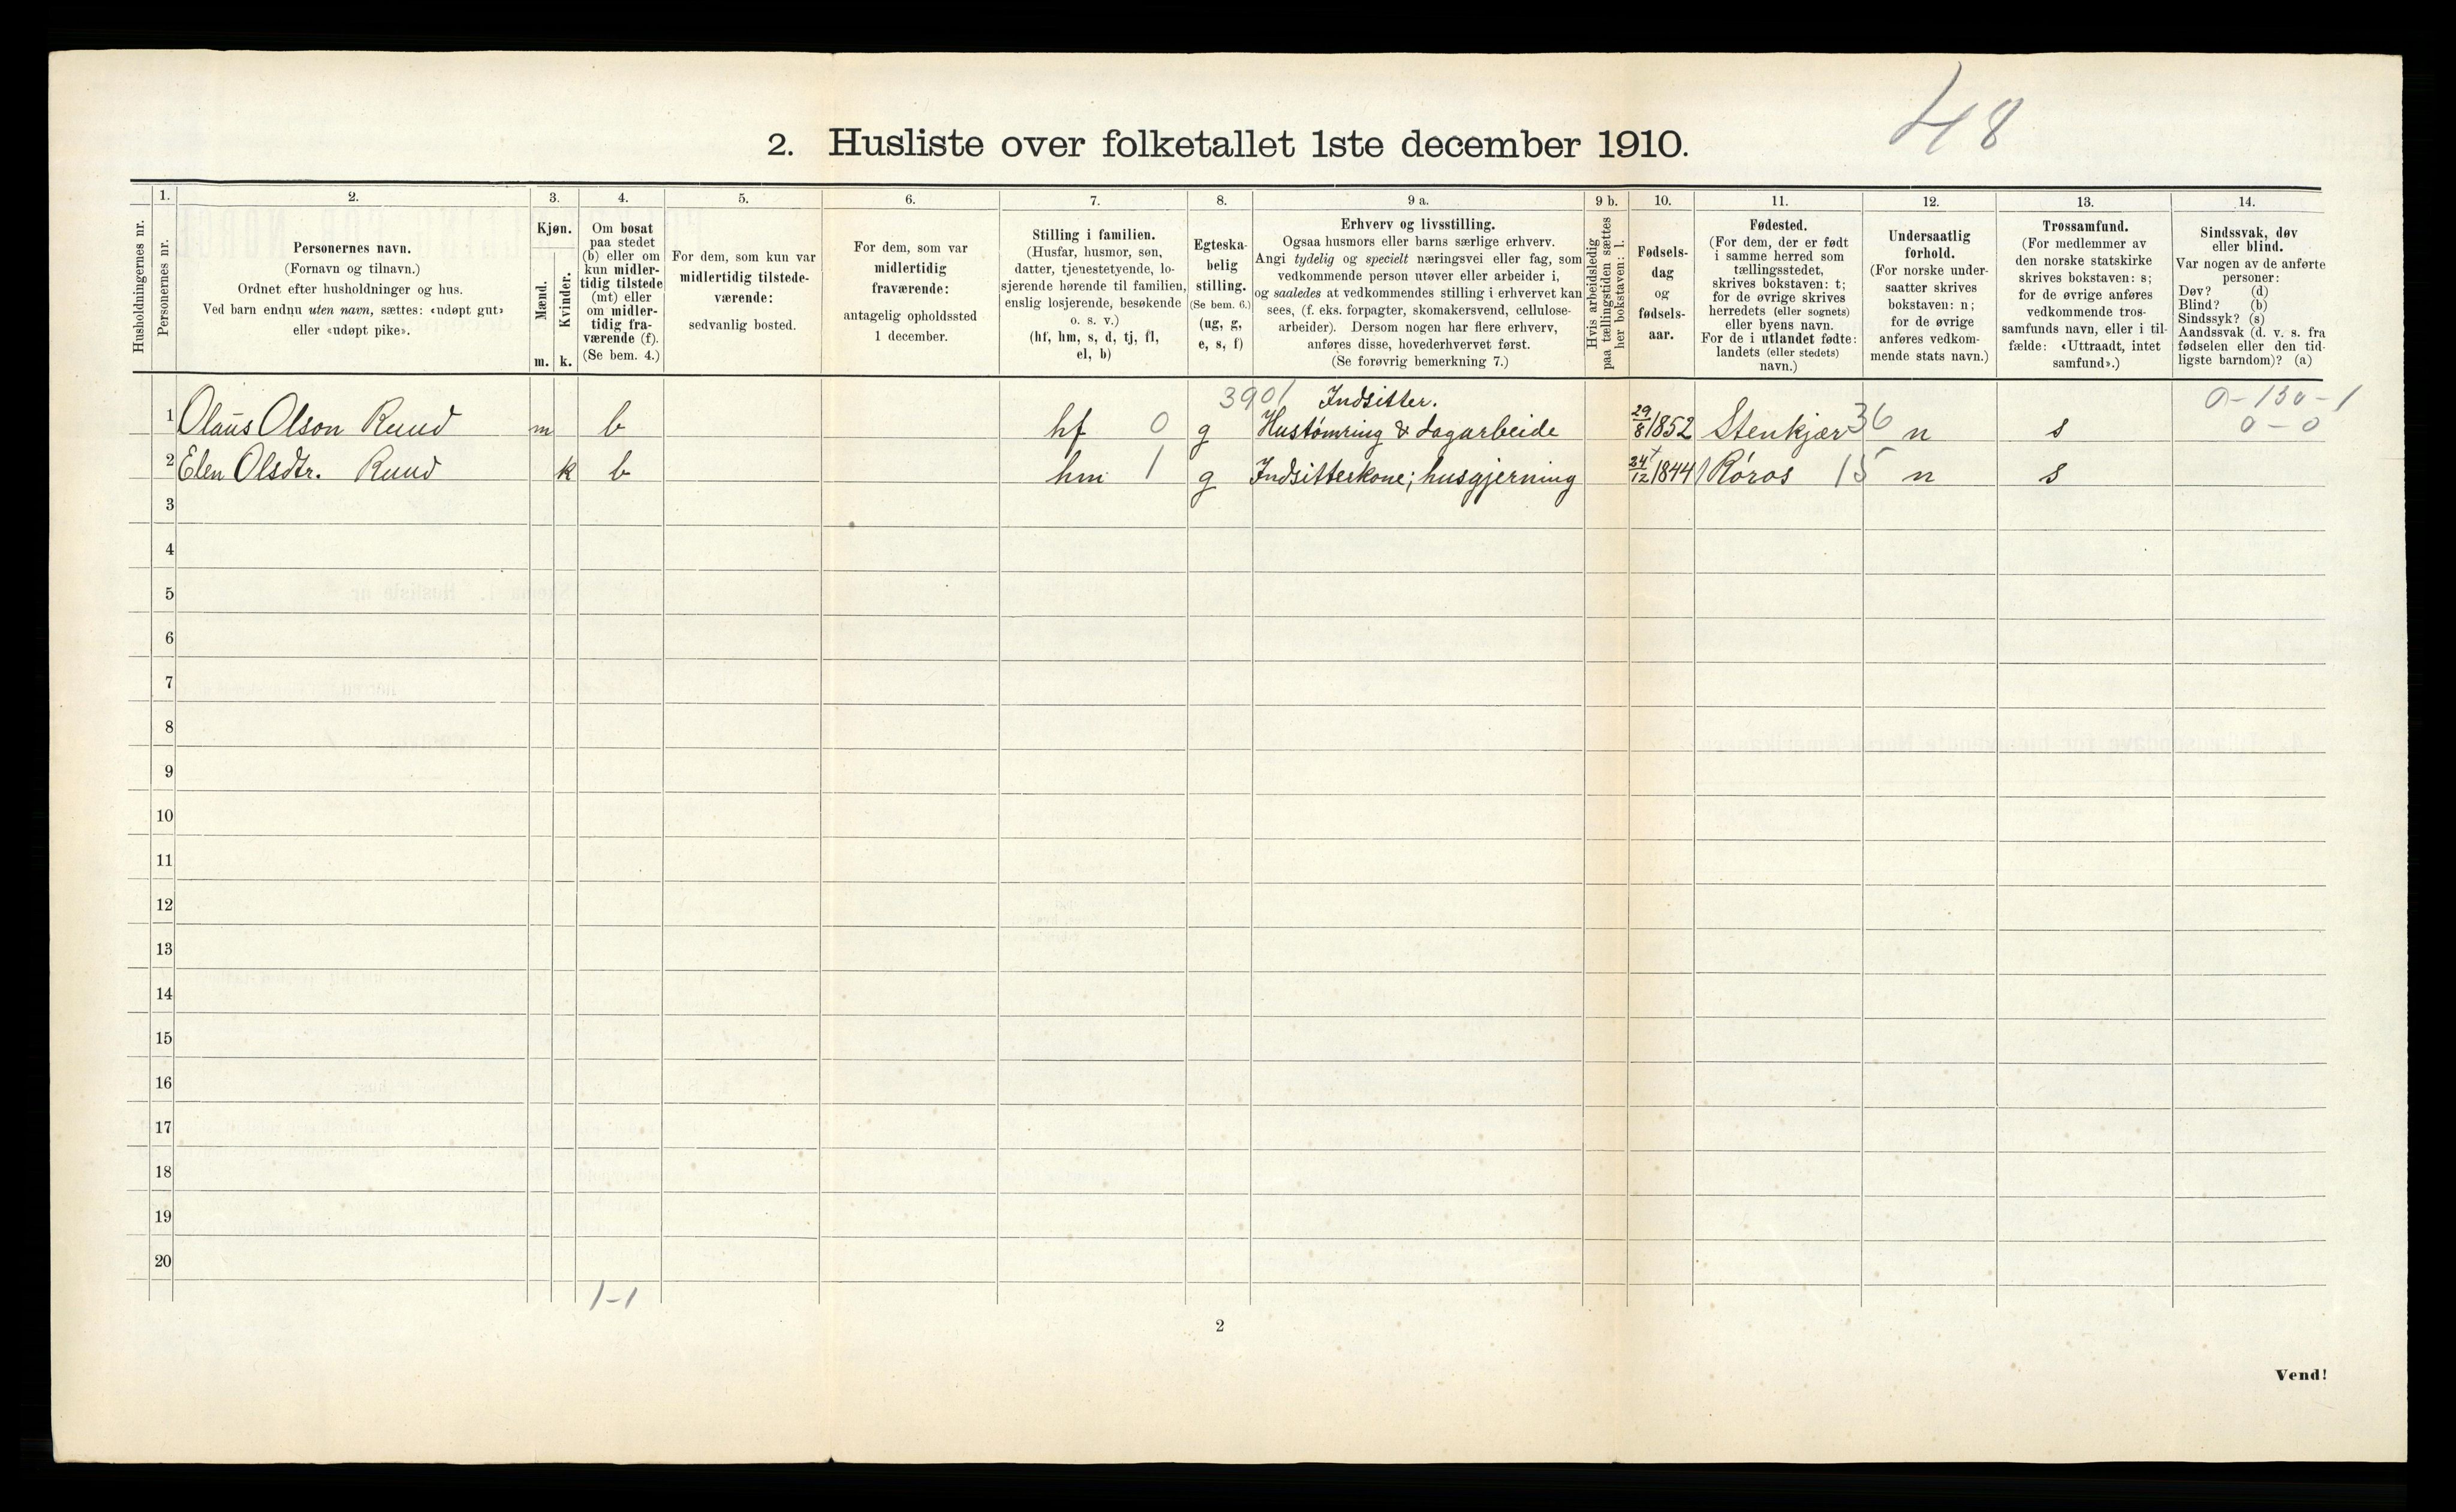 48
2. Husliste over folketallet 1ste december 1910.
Husholdningernes nr.
1.
Personernes nr.
2.
Personernes navn.
(Fornavn og tilnavn.)
Ordnet efter husholdninger og hus.
Ved barn endnu uten navn, sættes: «udøpt gut»
eller «udøpt pike».
3.
Kjøn.
Mænd.
m.
Kvinder.
k.
4.
Om bosat
paa stedet
(b) eller om
kun midler-
tidig tilstede
(mt) eller
om midler-
tidig fra-
værende (f).
(Se bem. 4.)
5.
For dem, som kun var
midlertidig tilstede-
værende:
sedvanlig bosted.
6.
For dem, som var
midlertidig
fraværende:
antagelig opholdssted
1 december.
7.
Stilling i familien.
(Husfar, husmor, søn,
datter, tjenestetyende, lo-
sjerende hørende til familien,
enslig losjerende, besøkende
o. s. v.)
(hf, hm, s, d, tj, fl,
el, b)
8.
Egteska-
belig
stilling.
(Se bem. 6.)
(ug, g,
e, s, f)
9 a.
Erhverv og livsstilling.
Ogsaa husmors eller barns særlige erhverv.
Angi tydelig og specielt næringsvei eller fag, som
vedkommende person utøver eller arbeider i,
og saaledes at vedkommendes stilling i erhvervet kan
sees, (f. eks. forpagter, skomakersvend, cellulose-
arbeider). Dersom nogen har flere erhverv,
anføres disse, hovederhvervet først.
(Se forøvrig bemerkning 7.)
9 b.
Hvis arbeidsledig
paa tællingstiden sættes
her bokstaven: l.
10.
Fødsels-
dag
og
fødsels-
aar.
11.
Fødested.
(For dem, der er født
i samme herred som
tællingsstedet,
skrives bokstaven: t;
for de øvrige skrives
herredets (eller sognets)
eller byens navn.
For de i utlandet fødte:
landets (eller stedets)
navn.)
12.
Undersaatlig
forhold.
(For norske under-
saatter skrives
bokstaven: n;
for de øvrige
anføres vedkom-
mende stats navn.)
13.
Trossamfund.
(For medlemmer av
den norske statskirke
skrives bokstaven: s;
for de øvrige anføres
vedkommende tros-
samfunds navn, eller i til-
fælde: «Uttraadt, intet
samfund».)
14.
Sindssvak, døv
eller blind.
Var nogen av de anførte
personer:
Døv? (d)
Blind? (b)
Sindssyk? (s)
Aandssvak (d. v. s. fra
fødselen eller den tid-
ligste barndom)? (a)
3901 Indsitter. 0-130-1
1 Olaus Olson Ruud m b hf 0 g Hustømring & dagarbeide 29/8 1852 Stenkjær 36 n s 0-0
2 Elen Olsdtr. Ruud k b hm 1 g Indsitterkone; husgjerning 24/12 1844 Røros 15 n s
3
4
5
6
7
8
9
10
11
12
13
14
15
16
17
18
19
20
1-1
2
Vend!